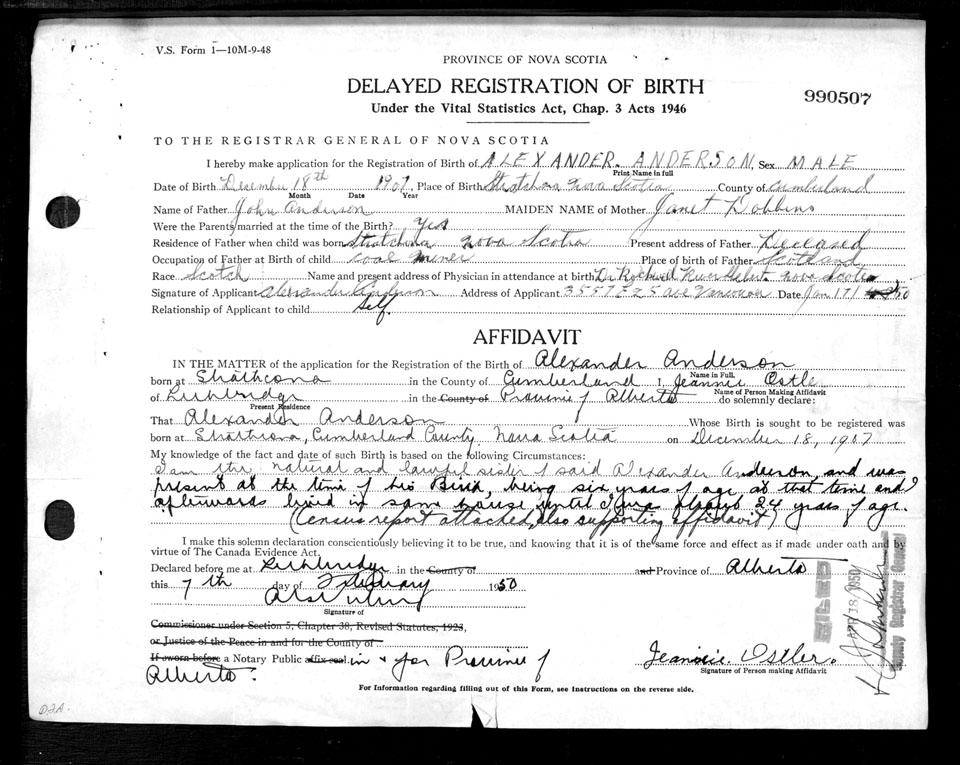 V.S. Form 1—10M-9-48
PROVINCE OF NOVA SCOTIA
DELAYED REGISTRATION OF BIRTH
990507
Under the Vital Statistics Act, Chap. 3 Acts 1946
TO THE REGISTRAR GENERAL OF NOVA SCOTIA
I hereby make application for the Registration of Birth of ALEXANDER. ANDERSON, Sex MALE
Print Name in full
Date of Birth December 18th 1907, Place of Birth Nova Scotia County of Cumberland
Month Date Year
Name of Father John Anderson MAIDEN NAME of Mother Janet Dobbins
Were the Parents married at the time of the Birth? Yes
Residence of Father when child was born Nova Scotia Present address of Father Deceased
Occupation of Father at Birth of child coal miner Place of birth of Father Scotland
Race Scotch Name and present address of Physician in attendance at birth Dr Rockwell River Hebert Nova Scotia
Signature of Applicant Alexander Anderson Address of Applicant 3557 E 25 ave Vancouver Date Jan 17/50
Relationship of Applicant to child Self
AFFIDAVIT
IN THE MATTER of the application for the Registration of the Birth of Alexander Anderson
Name in Full.
born at Strathcona in the County of Cumberland I, Jeannie Ostler
Name of Person Making Affidavit
of Lethbridge in the County of Province of Alberta do solemnly declare:
Present Residence
That Alexander Anderson Whose Birth is sought to be registered was
born at Strathcona, Cumberland County, Nova Scotia on December 18, 1907
My knowledge of the fact and date of such Birth is based on the following Circumstances:
I am the natural and lawful sister of said Alexander Anderson, and was
present at the time of his Birth, being six years of age at that time and
afterwards lived in same house until I was about 24 years of age.
(Census report attached, also supporting affidavit)
I make this solemn declaration conscientiously believing it to be true, and knowing that it is of the same force and effect as if made under oath and by
virtue of The Canada Evidence Act.
Declared before me at Lethbridge in the County of and Province of Alberta
this 7th day of February 1950
Signature of
Commissioner under Section 5, Chapter 38, Revised Statutes, 1923,
or Justice of the Peace in and for the County of
If sworn before a Notary Public affix seal in & for Province of
Alberta.
Jeannie Ostler.
Signature of Person making Affidavit
For Information regarding filling out of this Form, see Instructions on the reverse side.
FILED
APR 18 1950
Deputy Registrar General